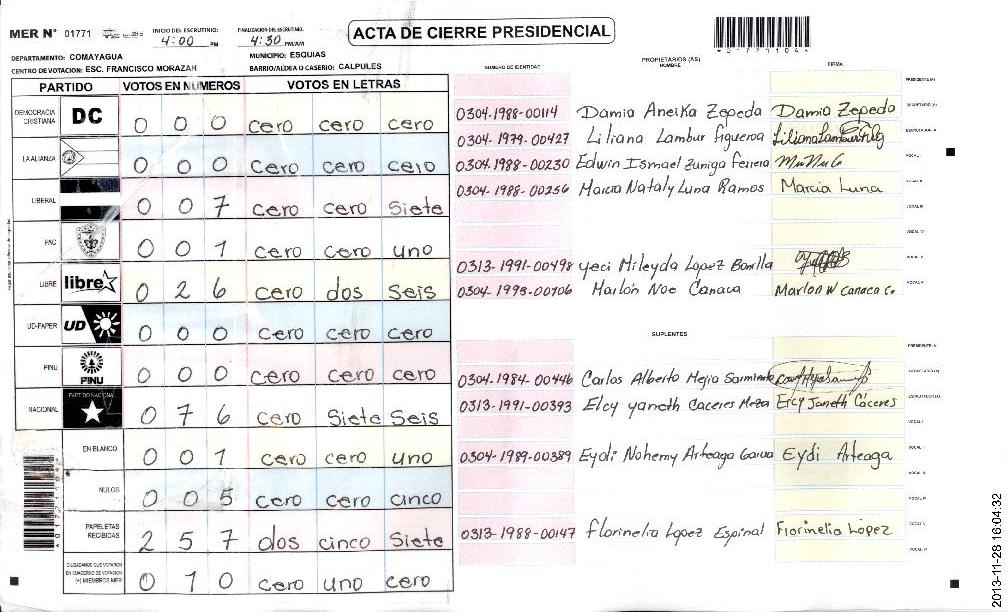 MER N° 01771
INICIO DEL ESCRUTINIO: 4:00 PM
FINALIZACION DEL ESCRUTINIO: 4:30 PM/AM
ACTA DE CIERRE PRESIDENCIAL
*01771104*
DEPARTAMENTO: COMAYAGUA
MUNICIPIO: ESQUIAS
CENTRO DE VOTACION: ESC. FRANCISCO MORAZAN
BARRIO/ALDEA O CASERIO: CALPULES
PARTIDO VOTOS EN NUMEROS VOTOS EN LETRAS
DEMOCRACIA CRISTIANA DC 0 0 0 cero cero cero
LA ALIANZA 0 0 0 cero cero cero
LIBERAL 0 0 7 cero cero Siete
PAC 0 0 1 cero cero uno
LIBRE libre 0 2 6 cero dos Seis
UD-FAPER UD 0 0 0 cero cero cero
PINU PINU 0 0 0 cero cero cero
NACIONAL PARTIDO NACIONAL 0 7 6 cero Siete Seis
EN BLANCO 0 0 1 cero cero uno
NULOS 0 0 5 cero cero cinco
PAPELETAS RECIBIDAS 2 5 7 dos cinco Siete
CIUDADANOS QUE VOTARON EN CUADERNO DE VOTACION (+) MIEMBROS MER 0 1 0 cero uno cero
NUMERO DE IDENTIDAD
PROPIETARIOS (AS)
NOMBRE
FIRMA
PRESIDENTE (A)
0304-1988-00114 Damia Aneika Zepeda Damia Zepeda SECRETARIO (A)
0304-1979-00427 Liliana Lambur figueroa ESCRUTADOR (A)
0304-1988-00230 Edwin Ismael Zuniga Ferrera VOCAL I
0304-1988-00256 Marcia Nataly Luna Ramos Marcia Luna VOCAL II
VOCAL III
VOCAL IV
0313-1991-00498 yeci Mileyda Lopez Bonilla VOCAL V
0304-1995-00706 Marlon Noe Canaca Marlon N Canaca C. VOCAL VI
SUPLENTES
PRESIDENTE (A)
0304-1984-00446 Carlos Alberto Mejia Sarmiento SECRETARIO (A)
0313-1991-00393 Elcy yaneth Caceres Meza Elcy Janeth Cáceres ESCRUTADOR (A)
VOCAL I
0304-1989-00389 Eydi Nohemy Arteaga Garcia Eydi Arteaga VOCAL II
VOCAL III
VOCAL IV
0313-1988-00147 florinelia Lopez Espinal Florinelia López VOCAL V
VOCAL VI
2013-11-28 16:04:32